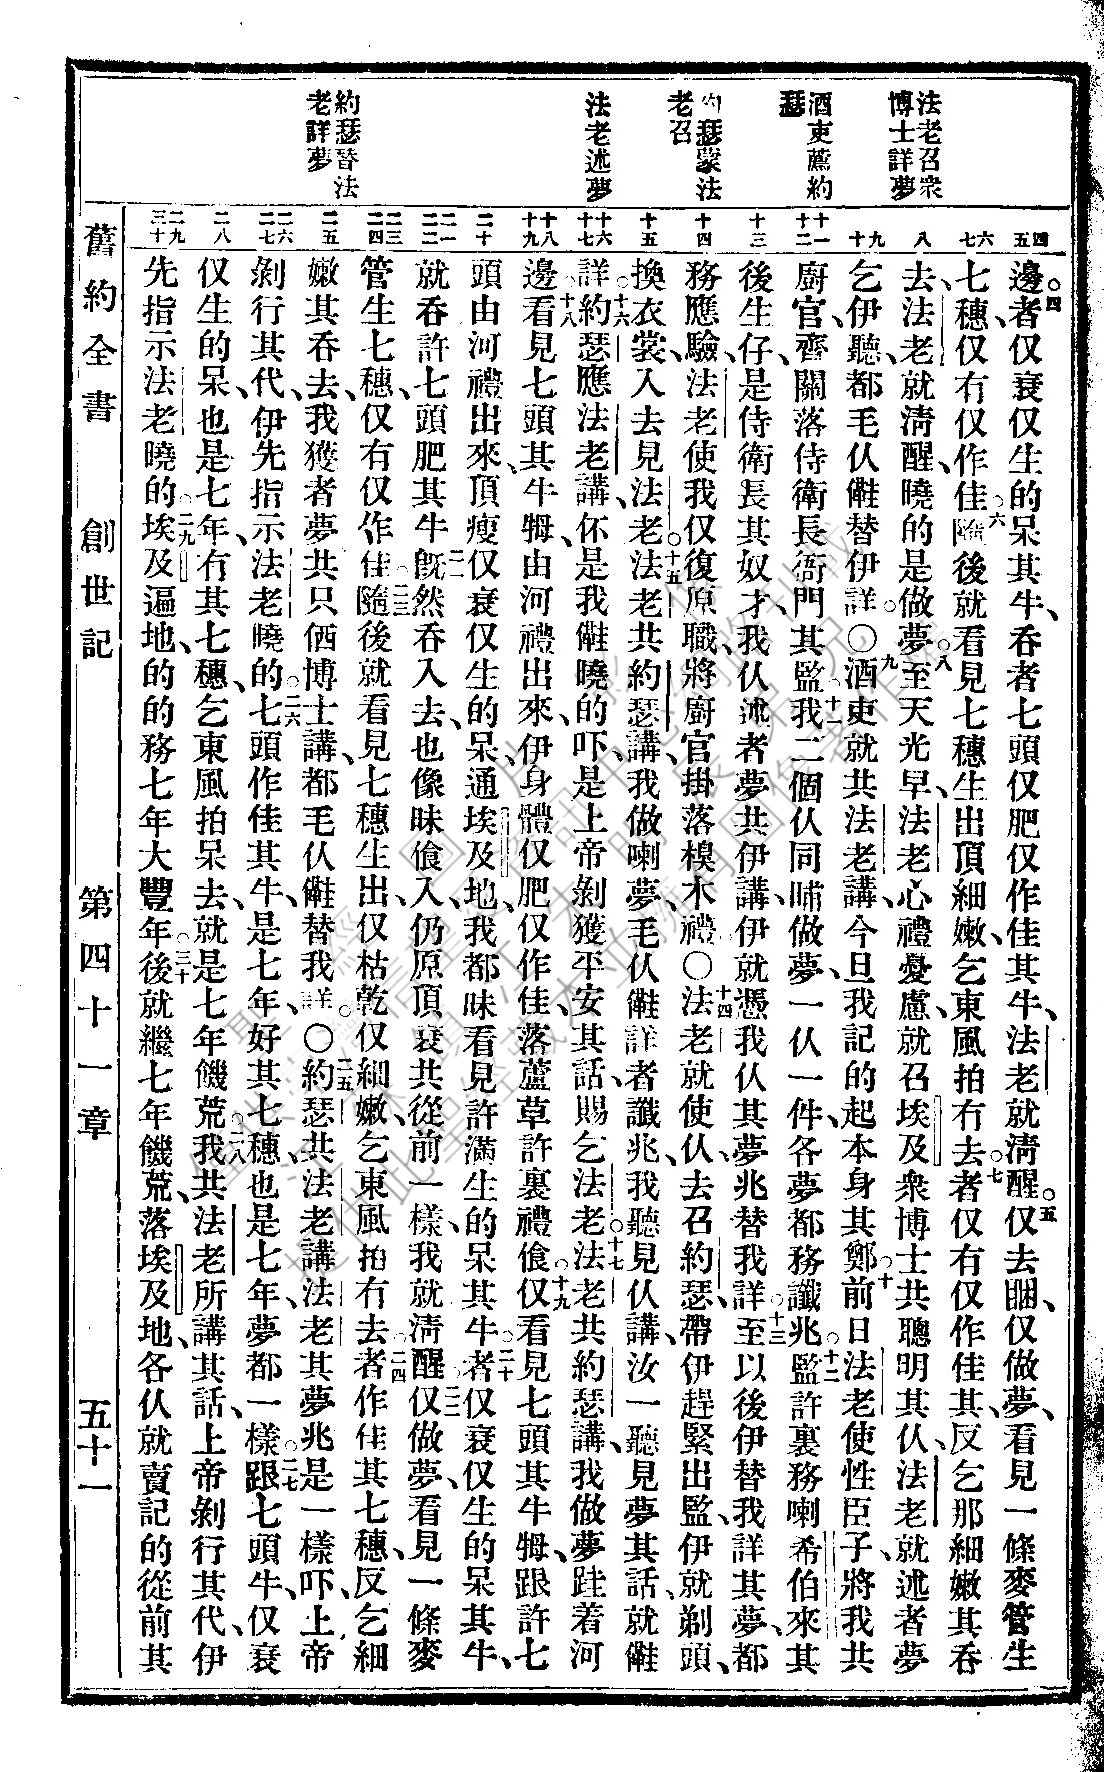 法老召衆
博士詳夢
酒吏薦約
瑟
約瑟蒙法
老召
法老述夢
約瑟替法
老詳夢
四 五
六 七
八
九 十
十一 十二
十三
十四
十五
十六 十七
十八 十九
二十
二一 二二
二三 二四
二五
二六 二七
二八
二九 三十
邊者仅衰仅生的呆其牛、吞者七頭仅肥仅作佳其牛、法老就清醒。五仅去睏、仅做夢、看見一條麥管生
七穗、仅有仅作佳、六隨後就看見七穗生出頂細嫩、乞東風拍冇去者仅有仅作佳其、反乞那細嫩其吞
去、法老就清醒、曉的是做夢。八至天光早、法老心禮憂慮、就召埃及衆博士共聰明其仈、法老就述者夢
乞伊聽、都毛仈㑚替伊詳。○九酒吏就共法老講、今旦我記的起本身其鄭。十前日法老使性臣子、將我共
廚官、齊關落侍衛長衙門其監。十一我二個仈同晡做夢、一仈一件、各夢都務讖兆。十二監許裏務喇希伯來其
後生仔、是侍衛長其奴才、我仈述者夢共伊講、伊就憑我仈其夢兆替我詳。十三至以後伊替我詳其夢、都
務應驗、法老使我仅復原職、將廚官掛落模木禮。○十四法老就使仈去召約瑟、帶伊趕緊出監、伊就剃頭、
換衣裳、入去見法老。十五法老共約瑟講、我做喇夢、毛仈㑚詳者讖兆、我聽見仈講、汝一聽見夢其話、就㑚
詳。十六約瑟應法老講、伓是我㑚曉的吓、是上帝剝獲平安其話賜乞法老。十七法老共約瑟講、我做夢跬着河
邊、十八看見七頭其牛㸙由河禮出來、伊身體仅肥仅作佳、落蘆草許裏禮偷。十九仅看見七頭其牛㸙、跟許七
頭由河禮出來、頂瘦仅衰仅生的呆、通埃及地、我都昧看見許滿生的呆其牛。二十者仅衰仅生的呆其牛、
就吞許七頭肥其牛。二一旣然吞入去、也像昧偷入、仍原頂衰共從前一樣、我就清醒。二二仅做夢、看見一條麥
管生七穗、仅有仅作佳、二三隨後就看見七穗生出、仅枯乾仅細嫩、乞東風拍冇去、二四者作佳其七穗、反乞細
嫩其吞去、我獲者夢共只俩博士講、都毛仈㑚替我詳。○二五約瑟共法老講、法老其夢兆是一樣吓、上帝
剝行其代、伊先指示法老曉的。二六七頭作佳其牛、是七年、好其七穗、也是七年、夢都一樣。二七跟七頭牛、仅衰
仅生的呆、也是七年、冇其七穗、乞東風拍呆去、就是七年饑荒。二八我共法老所講其話、上帝剝行其代、伊
先指示法老曉的。二九埃及遍地、的的務七年大豐年。三十後就繼七年饑荒、落埃及地、各仈就賣記的從前其
舊約全書 創世記 第四十一章 五十一